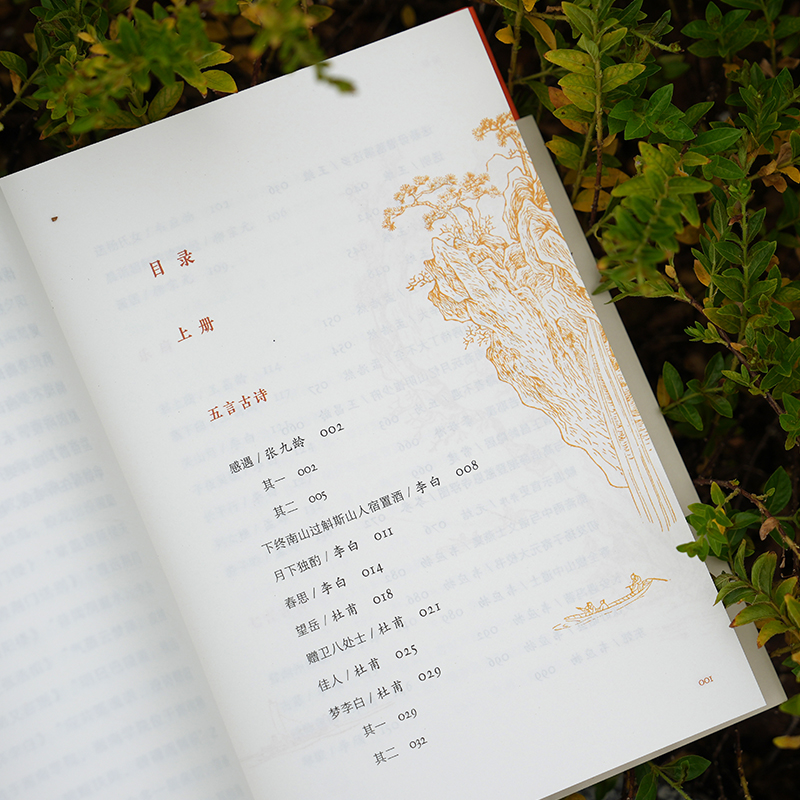 目录
上册
五言古诗
感遇 / 张九龄 002
其一 002
其二 005
下终南山过斛斯山人宿置酒 / 李白 008
月下独酌 / 李白 011
春思 / 李白 014
望岳 / 杜甫 018
赠卫八处士 / 杜甫 021
佳人 / 杜甫 025
梦李白 / 杜甫 029
其一 029
其二 032
001